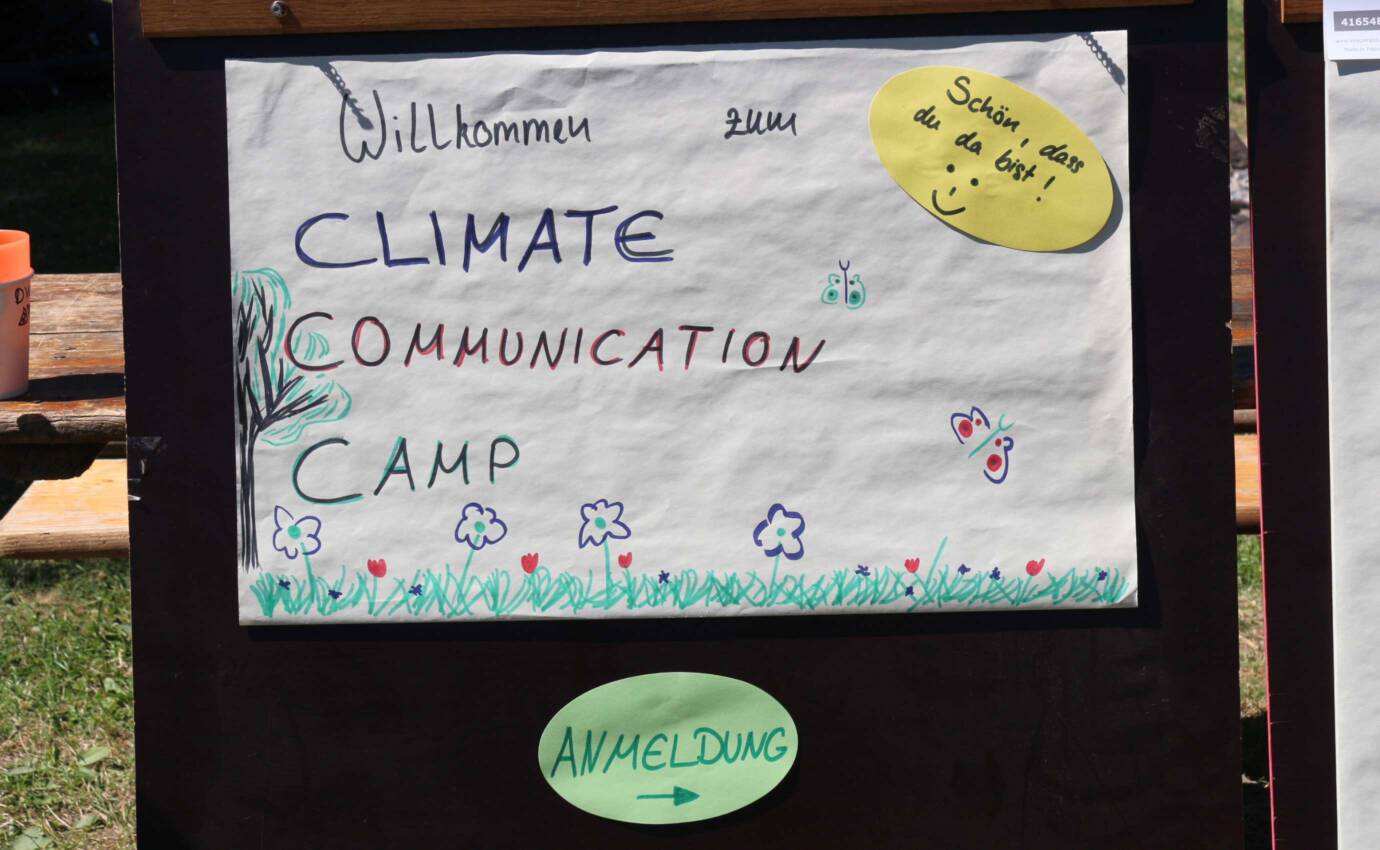 Willkommen zum
Schön, dass
du da bist!
CLIMATE
COMMUNICATION
CAMP
ANMELDUNG